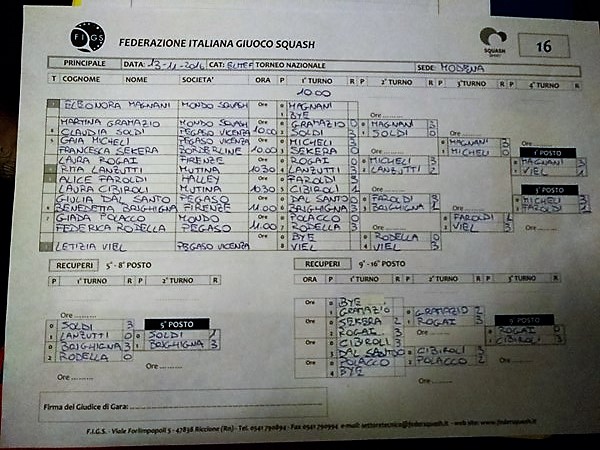 F.I.G.S
FEDERAZIONE ITALIANA GIUOCO SQUASH
SQUASH
16
PRINCIPALE DATA: 13-11-2016 CAT: TORNEO NAZIONALE SEDE: MODENA
T COGNOME NOME SOCIETA' ORA P 1° TURNO R P 2° TURNO R P 3° TURNO R P 4° TURNO R
10.00
ELEONORA MAGNANI MONDO SQUASH Ore MAGNANI
BYE
MARTINA GRAMAZIO MONDO SQUASH Ore GRAMAZIO 0 MAGNANI 3
CLAUDIA SOLDI PEGASO VICENZA 10.00 SOLDI 3 SOLDI 0
GAIA MICHELI PEGASO VICENZA Ore MICHELI 3 MAGNANI 3
FRANCESCA SEKERA 10.00 SEKERA 0 MICHELI 0 1° POSTO
LAURA ROGAI FIRENZE Ore ROGAI 0 MICHELI 3 MAGNANI 3
RITA LANZUTTI MUTINA 10.30 LANZUTTI 3 LANZUTTI 2 VIEL 1
ALICE FAROLDI Ore FAROLDI 3 3° POSTO
LAURA CIBIROLI MUTINA 10.30 CIBIROLI 1 MICHELI 3
GIULIA DAL SANTO PEGASO Ore DAL SANTO 0 FAROLDI 3 FAROLDI
BENEDETTA BRIGHIGNA FIRENZE 11.00 BRIGHIGNA 3 BRIGHIGNA 1
GIADA POLACCO MONDO Ore POLACCO 0 FAROLDI 1
FEDERICA RODELLA PEGASO 11.00 RODELLA 3 VIEL 3
Ore BYE RODELLA 0
LETIZIA VIEL PEGASO VICENZA VIEL VIEL 3
RECUPERI 5° - 8° POSTO
P 1° TURNO R P 2° TURNO R
Ore
SOLDI 3 5° POSTO
LANZUTTI 0 SOLDI 1
BRIGHIGNA 3 BRIGHIGNA 3
RODELLA 0
Ore
RECUPERI 9° -16° POSTO
ORA P 1° TURNO R P 2° TURNO R P 3° TURNO R
Ore BYE
GRAMAZIO GRAMAZIO 2
Ore SEKERA 2 ROGAI 3 9° POSTO
ROGAI 3 ROGAI 0
Ore CIBIROLI 3 CIBIROLI 3
DAL SANTO CIBIROLI 3
Ore POLACCO POLACCO 2
BYE
Firma del Giudice di Gara:
F.I.G.S. - Viale Forlimpopoli 5 - 47838 Riccione (Rn) - Tel. 0541 790894 - Fax 0541 790994 e-mail: settoretecnico@federsquash.it - web site: www.federsquash.it